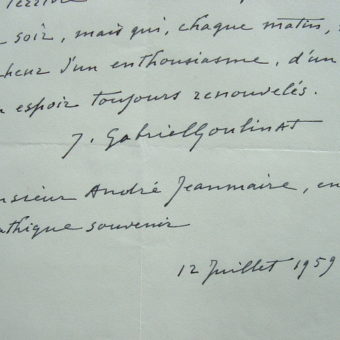 soir, mais qui, chaque matin,
d'un enthousiasme, d'un
espoir toujours renouvelés.
J. Gabriel Goulinat
André Jeanmaire, en
souvenir
12 Juillet 1959